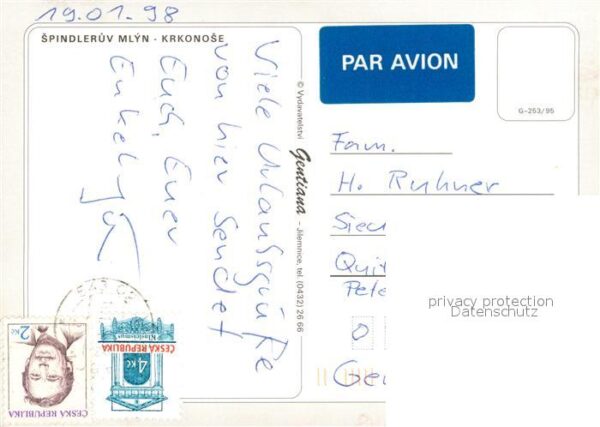 19.01.98
ŠPINDLERŮV MLÝN - KRKONOŠE
Viele Urlaubsgrüße
von hier sendet
Euch, Euer
Enkel
© Vydavatelství Gentiana - Jilemnice, tel. (0432) 26 66
PAR AVION
G-253/95
Fam.
H. Ruhner
privacy protection
Datenschutz
2 Kč
ČESKÁ REPUBLIKA
Klasicismus
ČESKÁ REPUBLIKA
4 Kč